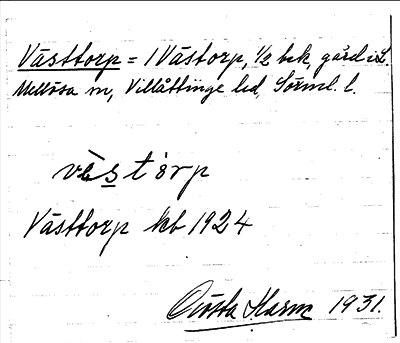 Västtorp = 1 Västorp, 1/2 bek, gård i L.
Mellösa sn, Villåttinge hd, Sörml. l.
vès t òrp
Västtorp kb 1924
Gösta Harm 1931.